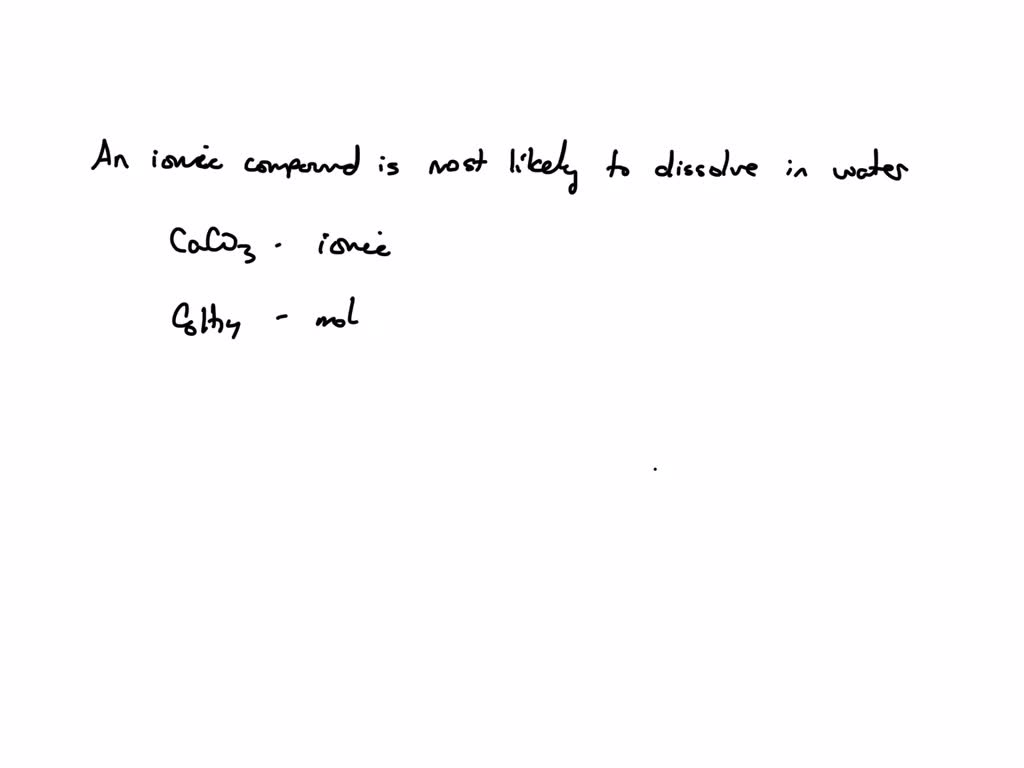 An ionic compound is most likely to dissolve in water
CaCO3 - ionic
C6H14 - mol